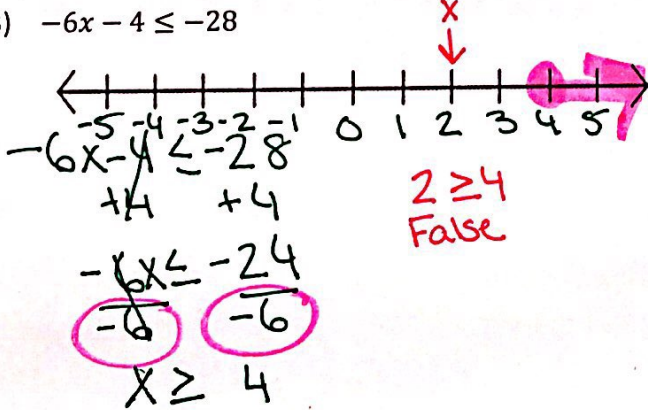 ) -6x - 4 ≤ -28
x
-5 -4 -3 -2 -1 0 1 2 3 4 5
-6x-4 ≤ -28
+4 +4
-6x ≤ -24
-6 -6
x ≥ 4
2 ≥ 4
False